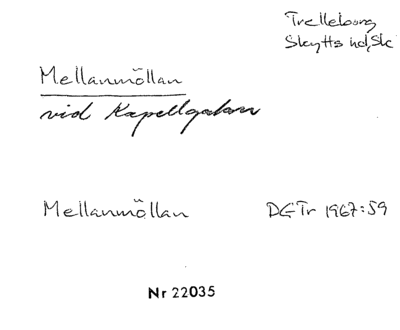 Trelleborg
Skytts hd, Sk
Mellanmöllan
vid Kapellgatan
Mellanmöllan DGTr 1967:59
Nr 22035